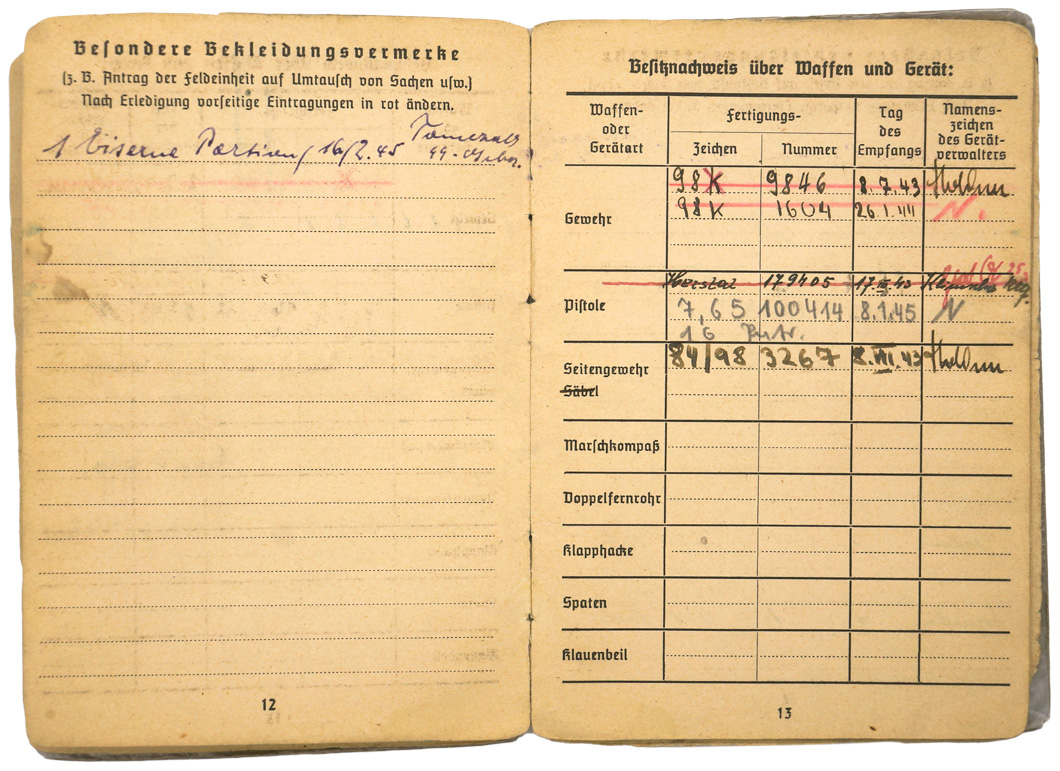 Besondere Bekleidungsvermerke
(z. B. Antrag der Feldeinheit auf Umtausch von Sachen usw.)
Nach Erledigung vorseitige Eintragungen in rot ändern.
1 Eiserne Portion, 16/2.45
12
Besitznachweis über Waffen und Gerät:
Waffen- oder Gerätart
Fertigungs-
Zeichen
Nummer
Tag des Empfangs
Namens- zeichen des Gerät- verwalters
Gewehr
98K 9846 8.7.43
98K 1604 26.1.44 N.
Pistole
Herstal 179405 17.III.43
7,65 100414 8.1.45 N
16 Patr.
Seitengewehr
84/98 3267 8.VII.43
Säbel
Marschkompaß
Doppelfernrohr
Klapphacke
Spaten
Klauenbeil
13